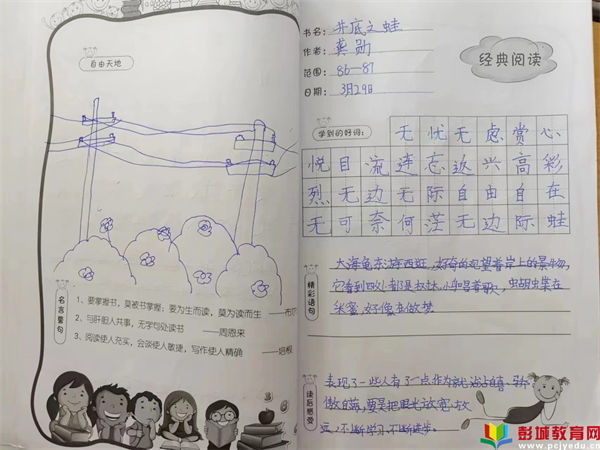 自由天地
名言警句
1、要掌握书，莫被书掌握；要为生而读，莫为读而生 ——布尔
2、与肝胆人共事，无字句处读书 ——周恩来
3、阅读使人充实，会谈使人敏捷，写作使人精确 ——培根
书名：井底之蛙
作者：龚勋
范围：86—87
日期：3月29日
经典阅读
学到的好词：
无忧无虑赏心
悦目流连忘返兴高彩
烈无边无际自由自在
无可奈何茫无边际蛙
精彩语句
大海龟东游西逛，好奇的观望着岸上的景物，
它看到四处都是 小鸟唱着歌， 蝴蝶在
采蜜，好像在做梦
读后感受
表现了一些人有了一点作为就沾沾自喜、骄
傲自满，要 把眼光放宽、放
远，不断学习，不断进步。
彭城教育网
www.pcjyedu.cn